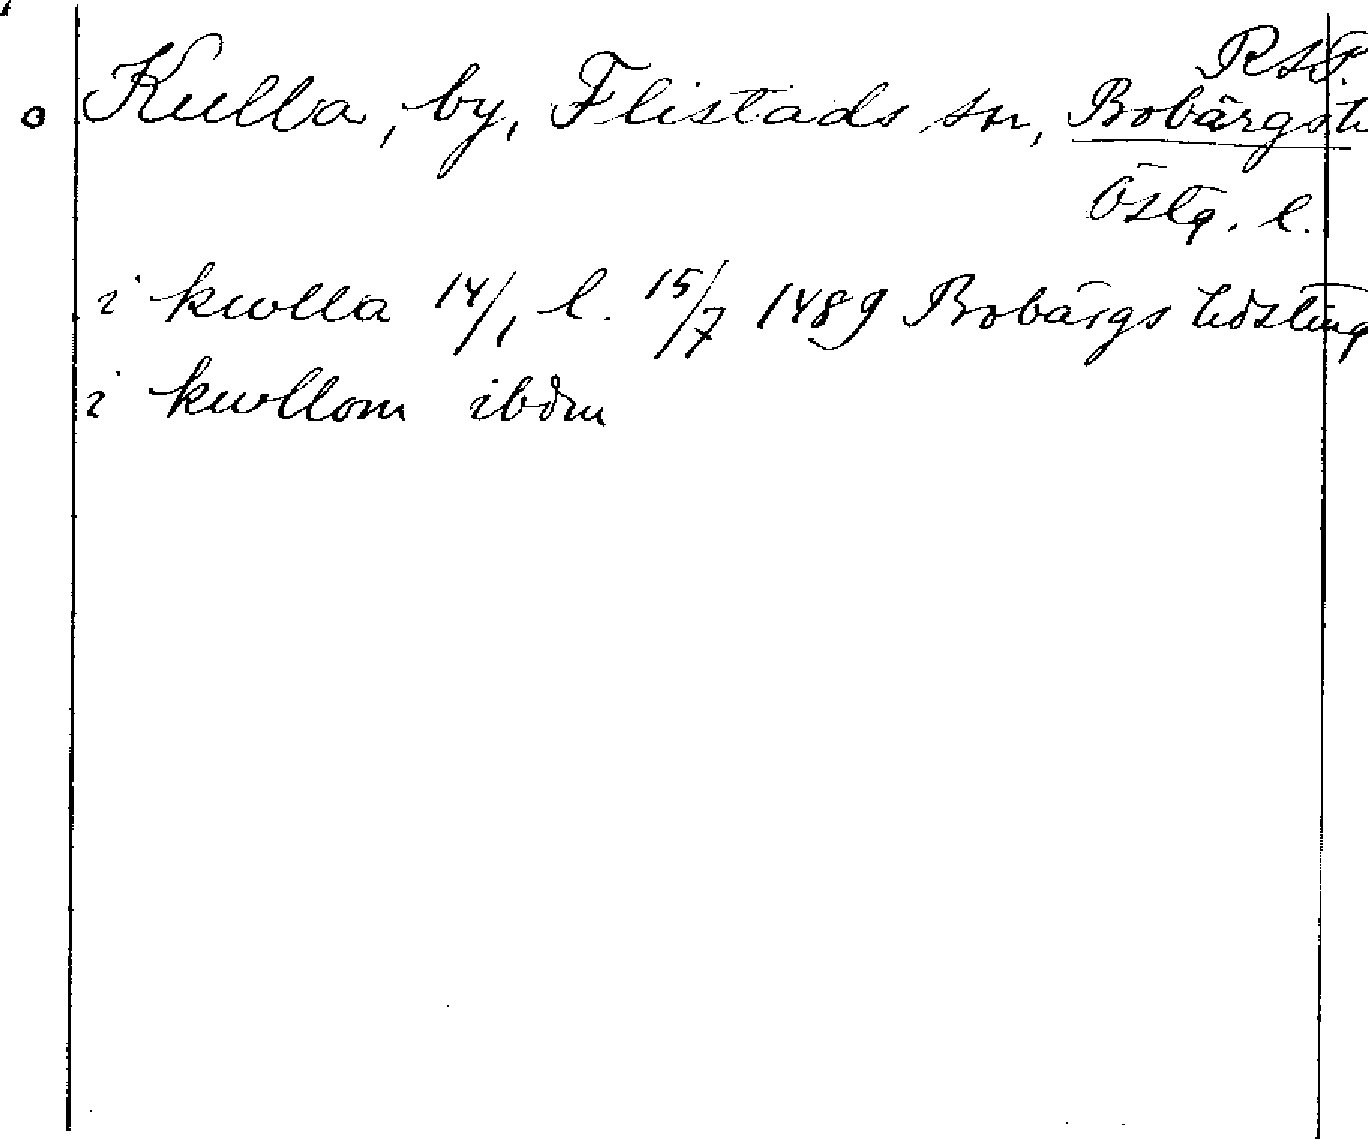 RAP.
Kulla, by, Flistads sn, Bobärgs h
Östg. l.
i kwlla 14/1 l. 15/7 1489 Bobärgs hdsting
i kwllom ibdm